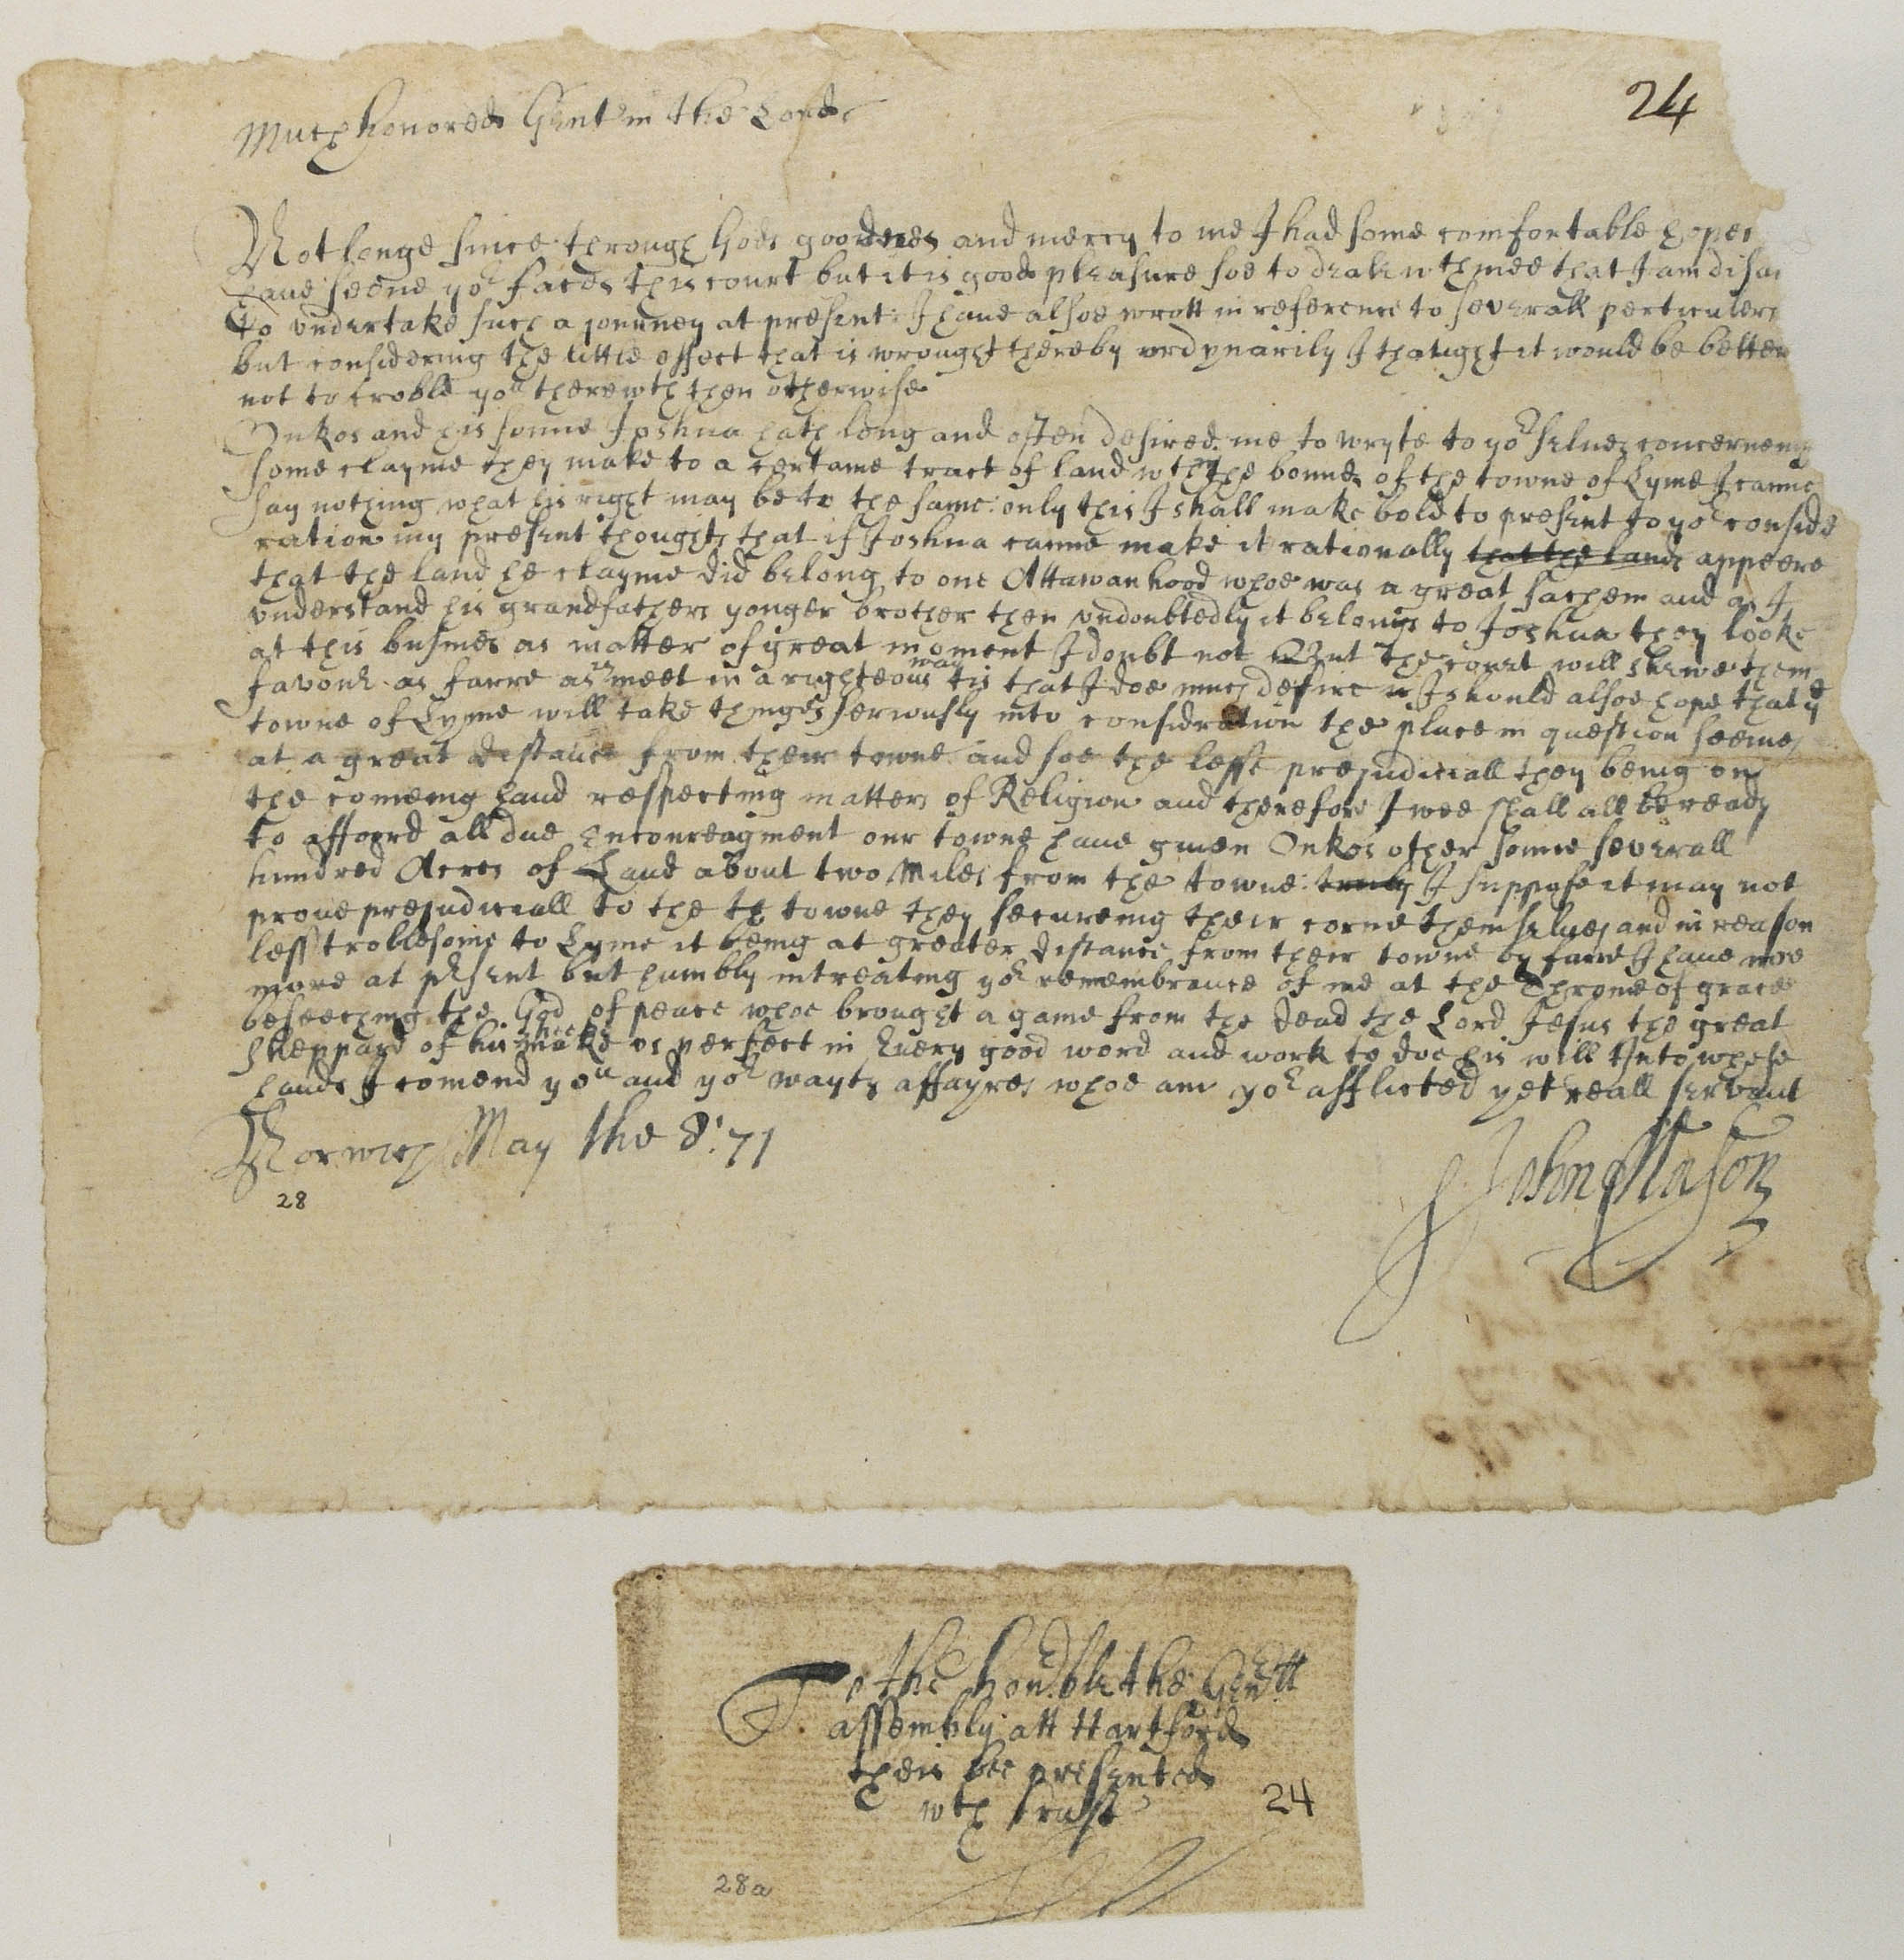 24
Much honored Gent in the Lord
Not longe since through Gods goodnes and mercy to me I had some comfortable hopes
haue seene yor faces this court but it is gods pleasure soe to deale wth mee that I am
to vndertake such a jouney at present: I haue alsoe wrott in reference to severall perticulers
but considering the little effect that is wrought thereby ordynarily I thought it would be better
not to troble you therewth then otherwise
Onkos and his sonne Joshua hath long and often desired me to wryte to yor selues concerneing
some clayme they make to a certaine tract of land wth the bounes of the towne of Lyme I
say nothing what his right may be to the same: only this I shall make bold to present to yor conside
ration my present thoughts that if Joshua canne make it rationally that the lands appeere
that the land he clayme did belong to one Attawanhood whoe was a great sachem and as I
vnderstand his grandfathers yonger brother then vndoubtedly it belongs to Joshua they looke
at this busines as matter of great moment I doubt not But the court will shewe them
favour as farre as meet in a righteous way tis that I doe much desire I should alsoe hope that ye
towne of Lyme will take thinges seriously into considration the place in question seemes
at a great distance from their towne and soe the lesse prejudiciall they being on
the comeing hand respecting matters of Religion and therefore I wee shall all be ready
to affoord all due encoureagment our towne haue giuen Onkos other sonne severall
hundred Acres of Land about two Miles from the towne: truly I suppose it may not
proue prejudiciall to the th towne they secureing their corne themselues and in reason
less troblesome to Lyme it being at greater distance from their towne by farre I haue noe
more at psent but humbly intreating yor remembrance of me at the Throne of grace
beseeching the God of peace whoe brought a game from the dead the Lord Jesus the great
Sheppard of his sheepe make vs perfect in Every good word and work to doe his will Into whose
hands I comend you and yor wayty affayres whoe am yor afflicted yet reall servant
Norwich May the 8: 71
John Mason
28
To the honrble the Genrll
assembly att Hartford
theis bee presented
wth trust
24
28a